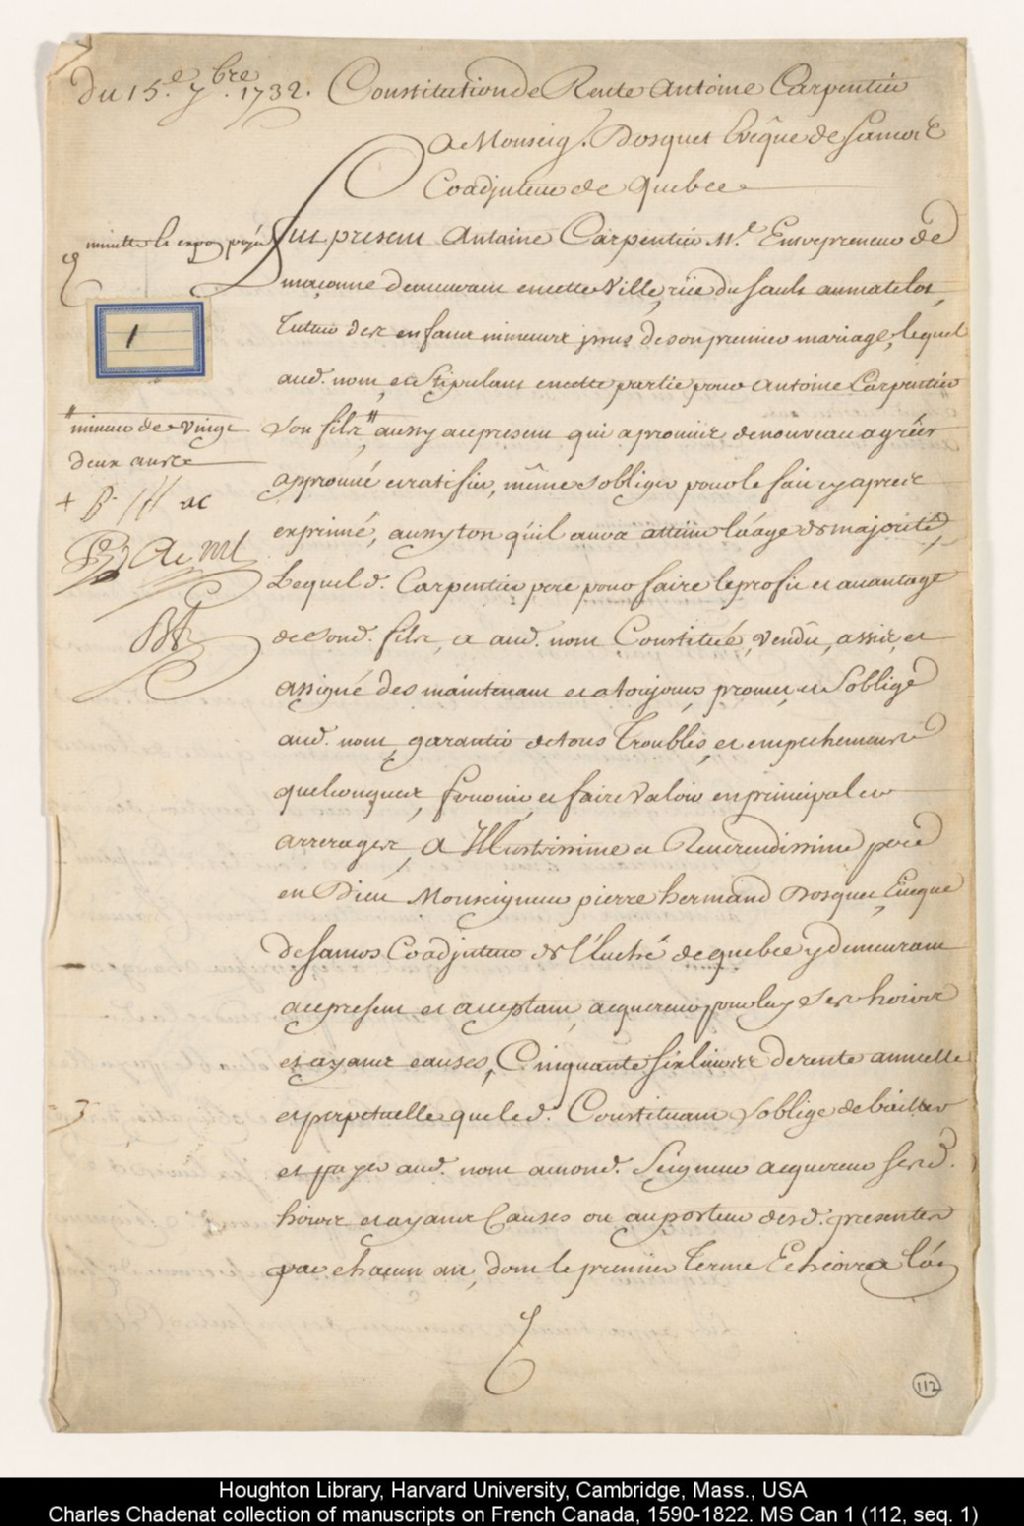 du 15.e 7.bre 1732. Constitution de Rente Antoine Carpentier
A Monseig.r Dosquet Evêque de Samos &
Coadjuteur de Quebec
minutte le expon payée
fut present Antoine Carpentier M.e Entrepreneur de
maçonne demeurant en cette Ville, rüe du Sault au matelot,
1
Tuteur des enfans mineurs issus de son premier mariage, lequel
aud. nom, et Stipulant en cette partie pour Antoine Carpentier
son fils " aussy a ce present qui a promis de nouveau agréer
" mineur de vingt
deux ans &
approuvé et ratifier, même s'obliger pour le fait cy apres
+ P. /// ac
exprimé, aussy tôt qu'il aura atteint l'âge de majorité,
A. Mt
Lequel d. Carpentier pere pour faire le profit et avantage
de Sond. fils, a aud. nom Constitué, vendû, assis, et
assigné des maintenant et a toujours, promet, et S'oblige
aud. nom, garantir de tous Troubles, et empechements
quelconques, fournir et faire Valoir en principal et
arrerages, A Illustrissime et Reverendissime pere
en Dieu Monseigneur pierre hermand Dosquet, Eveque
de Samos Coadjuteur de l'Eveché de quebec y demeurant
a ce present et acceptant, acquereur pour luy Ses hoirs
et ayant causes, Cinquante six livres de rente annuelle
et perpetuelle que led. Constituant s'oblige de bailler
et payer aud. nom a mond. Seigneur acquereur sesd.
hoirs et ayant Causes ou au porteur desd. presentes
par chacun an, dont le premier Terme Echeoira l'an
112
Houghton Library, Harvard University, Cambridge, Mass., USA
Charles Chadenat collection of manuscripts on French Canada, 1590-1822. MS Can 1 (112, seq. 1)